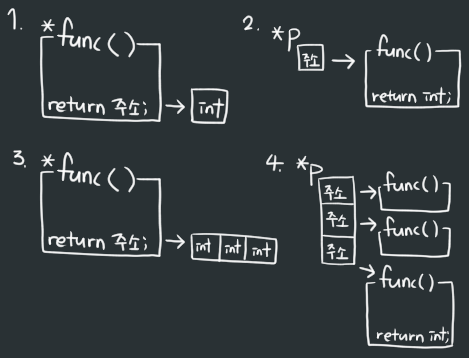 1. *func()
return 주소;
int
2. *P
주소
func()
return int;
3. *func()
return 주소;
int int int
4. *P
주소
func()
주소
func()
주소
func()
return int;